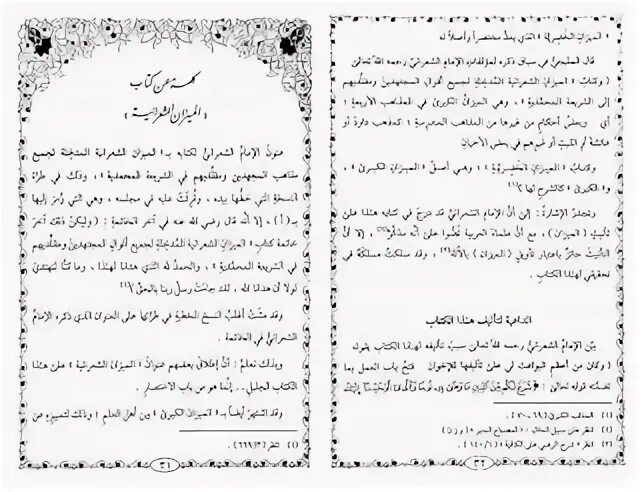 كلمة عن كتاب
« الميزان الشعرانية »
عنون الإمام الشعراني لكتابه بـ« الميزان الشعرانية المدخلة لجميع
مذاهب المجتهدين ومقلديهم في الشريعة المحمدية » ، وذلك في طرة
النسخة التي خطها بيده ، وقرئت عليه في مجلسه ، وهي التي رمز إليها
بـ( أ ) ، إلا أنه قال رضي الله عنه في آخر الخاتمة : ( وليكن ذلك آخر
خاتمة كتاب « الميزان الشعرانية المدخلة لجميع أقوال المجتهدين ومقلديهم
في الشريعة المحمدية » ، والحمد لله الذي هدانا لهذا ، وما كنا لنهتدي
لولا أن هدانا الله ، لقد جاءت رسل ربنا بالحق )(١)
وقد مشت أغلب النسخ الخطية في طرتها على العنوان الذي ذكره الإمام
الشعراني في الخاتمة .
وبذلك تعلم : أن إطلاق بعضهم عنوان « الميزان الشعرانية » على هذا
الكتاب الجليل .. إنما هو من باب الاختصار .
وقد اشتهر أيضاً بـ« الميزان الكبرى » بين أهل العلم ؛ وذلك لتمييزه عن
(١) انظر (٦٦٩/٣) .
٣١
« الميزان الخضرية » الذي يعد مختصراً وأصلاً له
قال المليجي في سياق ذكره لمؤلفات الإمام الشعراني رحمه الله تعالى
( وكتاب « الميزان الشعرانية المدخلة لجميع أقوال المجتهدين ومقلديهم
إلى الشريعة المحمدية » ، وهي الميزان الكبرى في المذاهب الأربعة
وبعض أحكام من غيرها من المذاهب
في بعض الأحيان
وكتاب « الميزان الخضرية » ، وهي أصل « الميزان الكبرى » ،
و« الكبرى » كالشرح لها )(١)
وتجدر الإشارة : إلى أن الإمام الشعراني قد درج في كتابه هذا على
تأنيث ( الميزان ) ، مع أن علماء العربية نصوا على أنه مذكر(٢) ، إلا أن
التأنيث جائز باعتبار تأويل ( الميزان ) بالآلة(٣) ، وقد سلكت مسلكه في
تحقيقي لهذا الكتاب .
الداعية لتأليف هذا الكتاب
بين الإمام الشعراني رحمه الله تعالى سبب تأليفه لهذا الكتاب بقوله
( وكان من أعظم البواعث لي على تأليفها للإخوان فتح باب العمل بما
تضمنه قوله تعالى : ﴿ شَرَعَ لَكُم مِّنَ الدِّينِ مَا وَصَّىٰ بِهِ نُوحًا وَالَّذِي أَوْحَيْنَا إِلَيْكَ
(١) المناقب الكبرى
(٢) انظر على سبيل المثال : « المصباح المنير » ( و ز ن )
(٣) انظر « شرح الرضي على الكافية »
٣٢